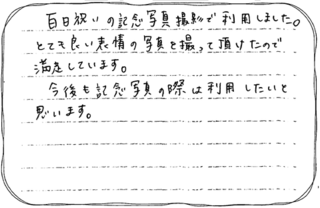 百日祝いの記念写真撮影で利用しました。
とても良い表情の写真を撮って頂けたので
満足しています。
今後も記念写真の際は利用したいと
思います。